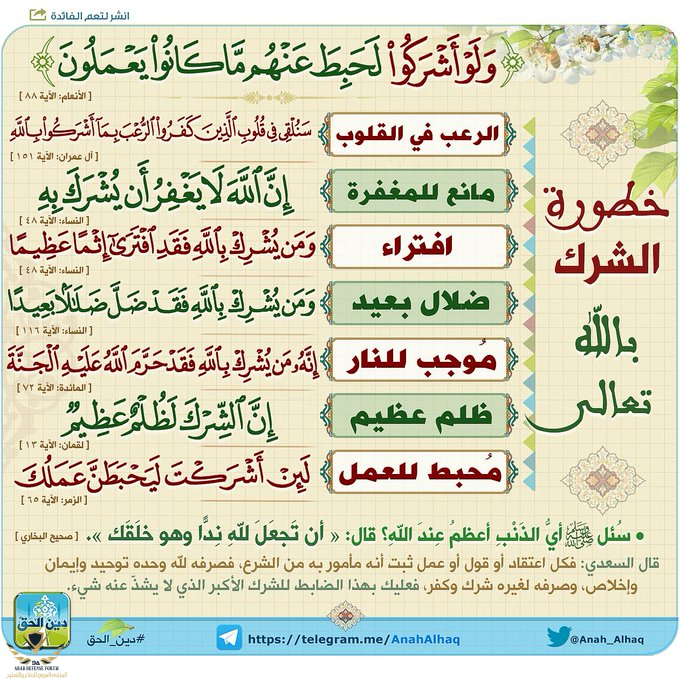 انشر لتعم الفائدة
﴿وَلَوْ أَشْرَكُوا۟ لَحَبِطَ عَنْهُم مَّا كَانُوا۟ يَعْمَلُونَ﴾
[ الأنعام: الآية ٨٨ ]
خطورة
الشرك
بالله
تعالى
الرعب في القلوب
سَنُلْقِى فِى قُلُوبِ ٱلَّذِينَ كَفَرُوا۟ ٱلرُّعْبَ بِمَآ أَشْرَكُوا۟ بِٱللَّهِ
[ آل عمران: الآية ١٥١ ]
مانع للمغفرة
إِنَّ ٱللَّهَ لَا يَغْفِرُ أَن يُشْرَكَ بِهِ
[ النساء: الآية ٤٨ ]
افتراء
وَمَن يُشْرِكْ بِٱللَّهِ فَقَدِ ٱفْتَرَىٰٓ إِثْمًا عَظِيمًا
[ النساء: الآية ٤٨ ]
ضلال بعيد
وَمَن يُشْرِكْ بِٱللَّهِ فَقَدْ ضَلَّ ضَلَـٰلًۢا بَعِيدًا
[ النساء: الآية ١١٦ ]
مُوجب للنار
إِنَّهُۥ مَن يُشْرِكْ بِٱللَّهِ فَقَدْ حَرَّمَ ٱللَّهُ عَلَيْهِ ٱلْجَنَّةَ
[ المائدة: الآية ٧٢ ]
ظلم عظيم
إِنَّ ٱلشِّرْكَ لَظُلْمٌ عَظِيمٌ
[ لقمان: الآية ١٣ ]
مُحبط للعمل
لَئِنْ أَشْرَكْتَ لَيَحْبَطَنَّ عَمَلُكَ
[ الزمر: الآية ٦٥ ]
• سُئل ﷺ أيُّ الذَّنْبِ أعظمُ عِندَ اللهِ؟ قال: « أن تَجعَلَ للهِ نِدًّا وهو خلَقَك ». [ صحيح البخاري ]
قال السعدي: فكل اعتقاد أو قول أو عمل ثبت أنه مأمور به من الشرع، فصرفه لله وحده توحيد وإيمان
وإخلاص، وصرفه لغيره شرك وكفر، فعليك بهذا الضابط للشرك الأكبر الذي لا يشذّ عنه شيء.
دين الحق
#دين_الحق
https://telegram.me/AnahAlhaq
@Anah_Alhaq
ARAB DEFENSE FORUM